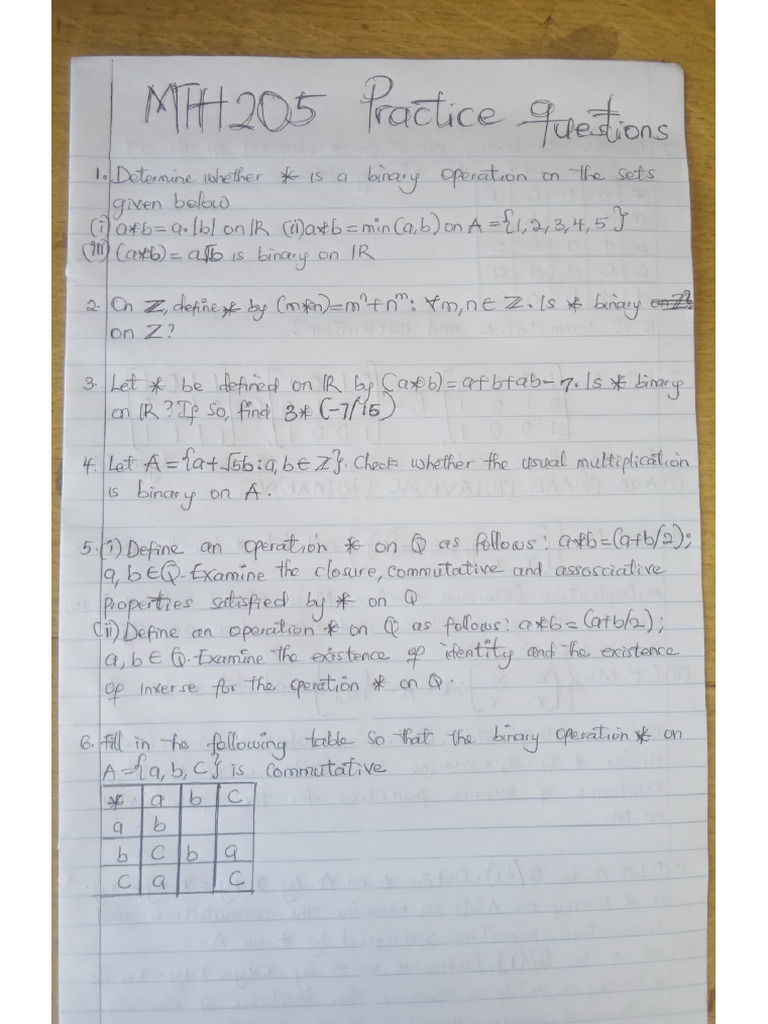 MTH205 Practice questions
1. Determine whether * is a binary operation on the sets
given below
(i) a*b=a.|b| on IR (ii) a*b=min(a,b) on A={1,2,3,4,5}
(iii) (a*b)=a√b is binary on IR
2. On Z, define * by (m*n)=mⁿ+nᵐ: ∀m,n∈Z. Is * binary
on Z?
3. Let * be defined on IR by (a*b)=a+b+ab-7. Is * binary
on IR? If so, find 3*(-7/15)
4. Let A={a+√5b:a,b∈Z}. Check whether the usual multiplication
is binary on A.
5. (i) Define an operation * on Q as follows: a*b=(a+b/2);
a,b∈Q. Examine the closure, commutative and assosciative
properties satisfied by * on Q
(ii) Define an operation * on Q as follows: a*b=(a+b/2);
a,b∈Q. Examine the existence of identity and the existence
of inverse for the operation * on Q.
6. Fill in the following table so that the binary operation * on
A={a,b,c} is commutative
* a b c
a b
b c b a
c a c